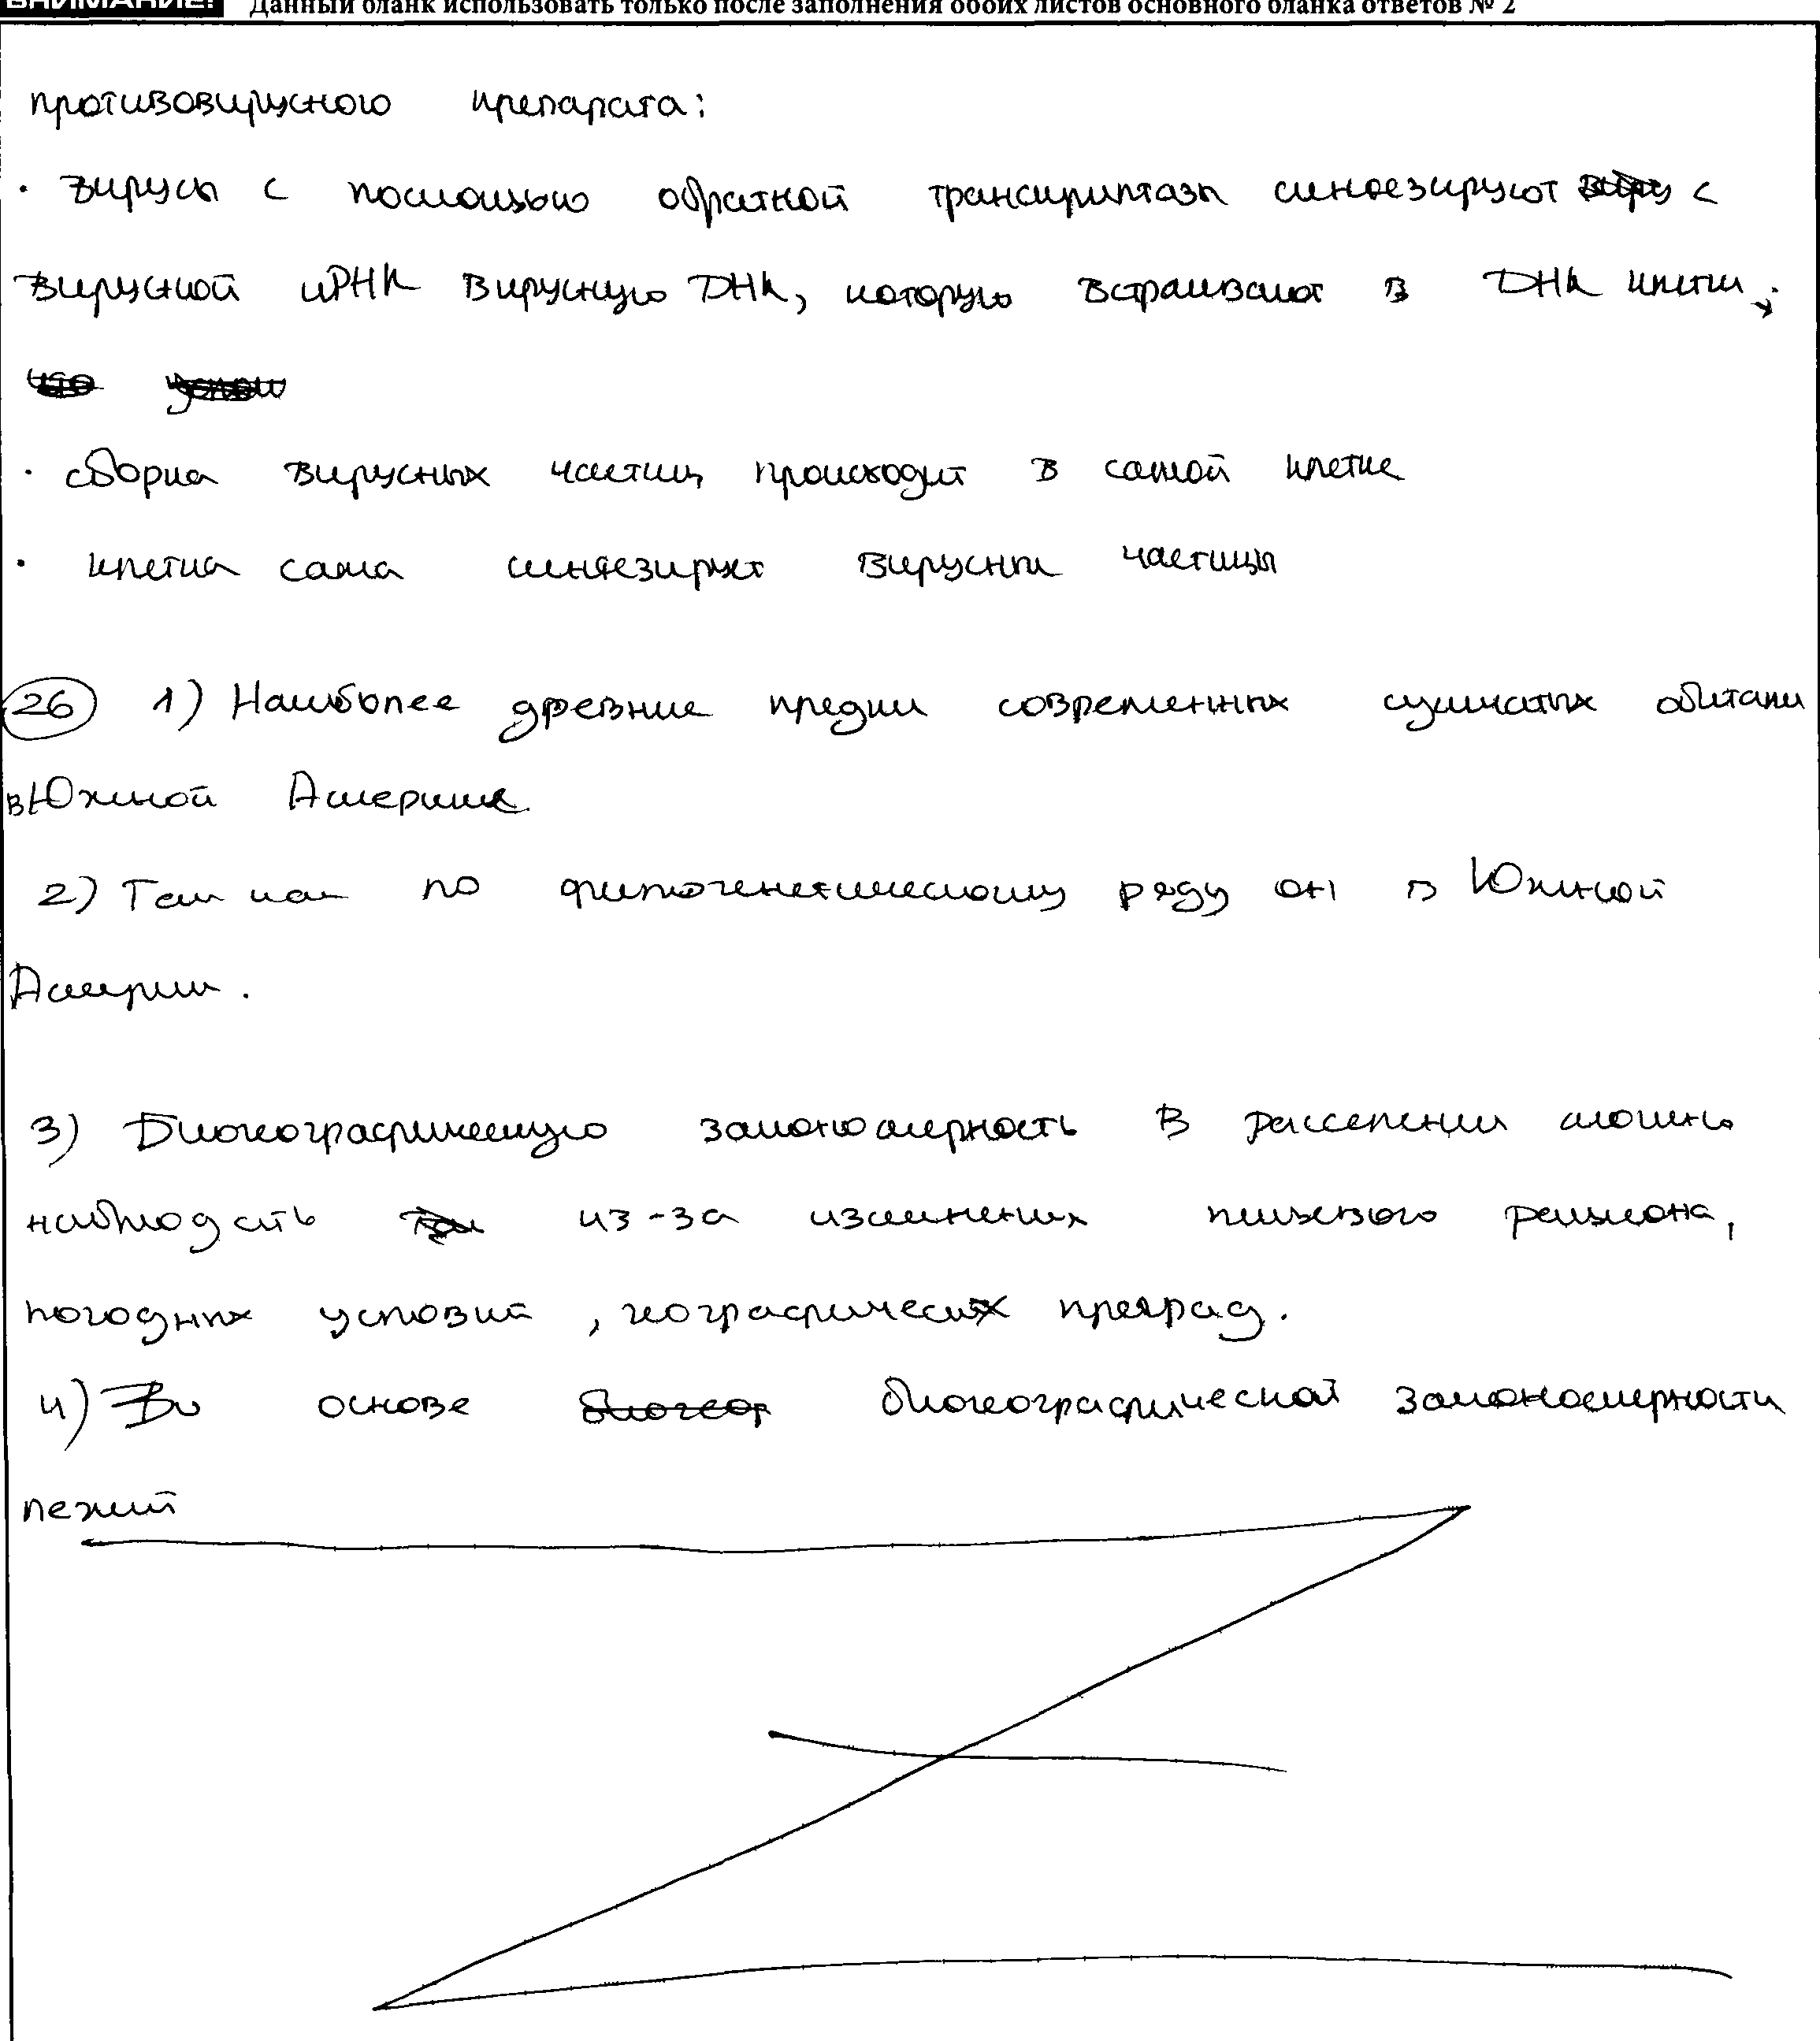 ВНИМАНИЕ! Данный бланк использовать только после заполнения обоих листов основного бланка ответов № 2
противовирусного препарата:
· вирусы с помощью обратной транскриптазы синтезируют с
вирусной иРНК вирусную ДНК, которую встраивают в ДНК клетки.
· сборка вирусных частиц происходит в самой клетке
· клетка сама синтезирует вирусны частицы
26 1) Наиболее древние предки современных сумчатых обитали
в Южной Америке.
2) Так как по филогенетическому ряду он в Южной
Америки.
3) Биогеографическую закономерность в расселении можно
наблюдать из-за изменениях пищевого рациона,
погодных условий, географических преград.
4) В основе биогеографической закономерности
лежит